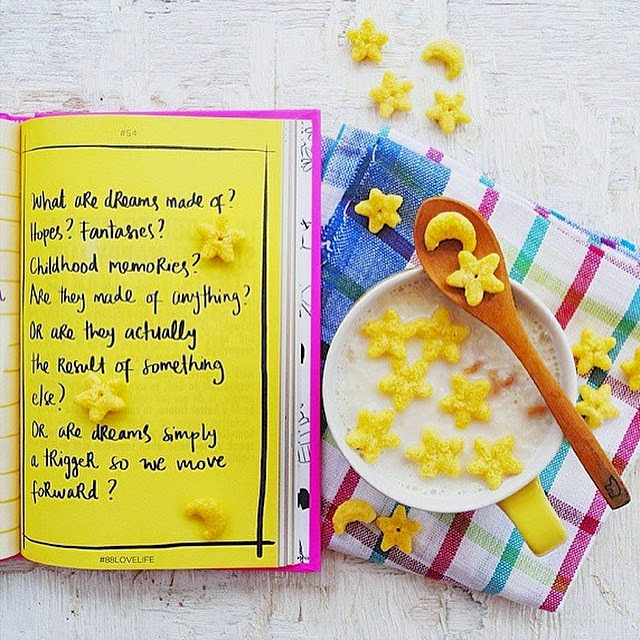 #54
What are dreams made of?
Hopes? Fantasies?
Childhood memories?
Are they made of anything?
Or are they actually
the result of something
else?
Or are dreams simply
a trigger so we move
forward?
#88LOVELIFE